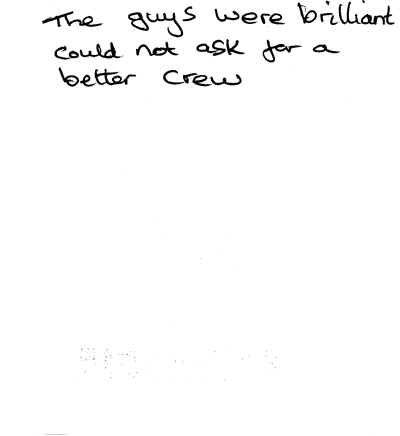 The guys were brilliant
could not ask for a
better crew